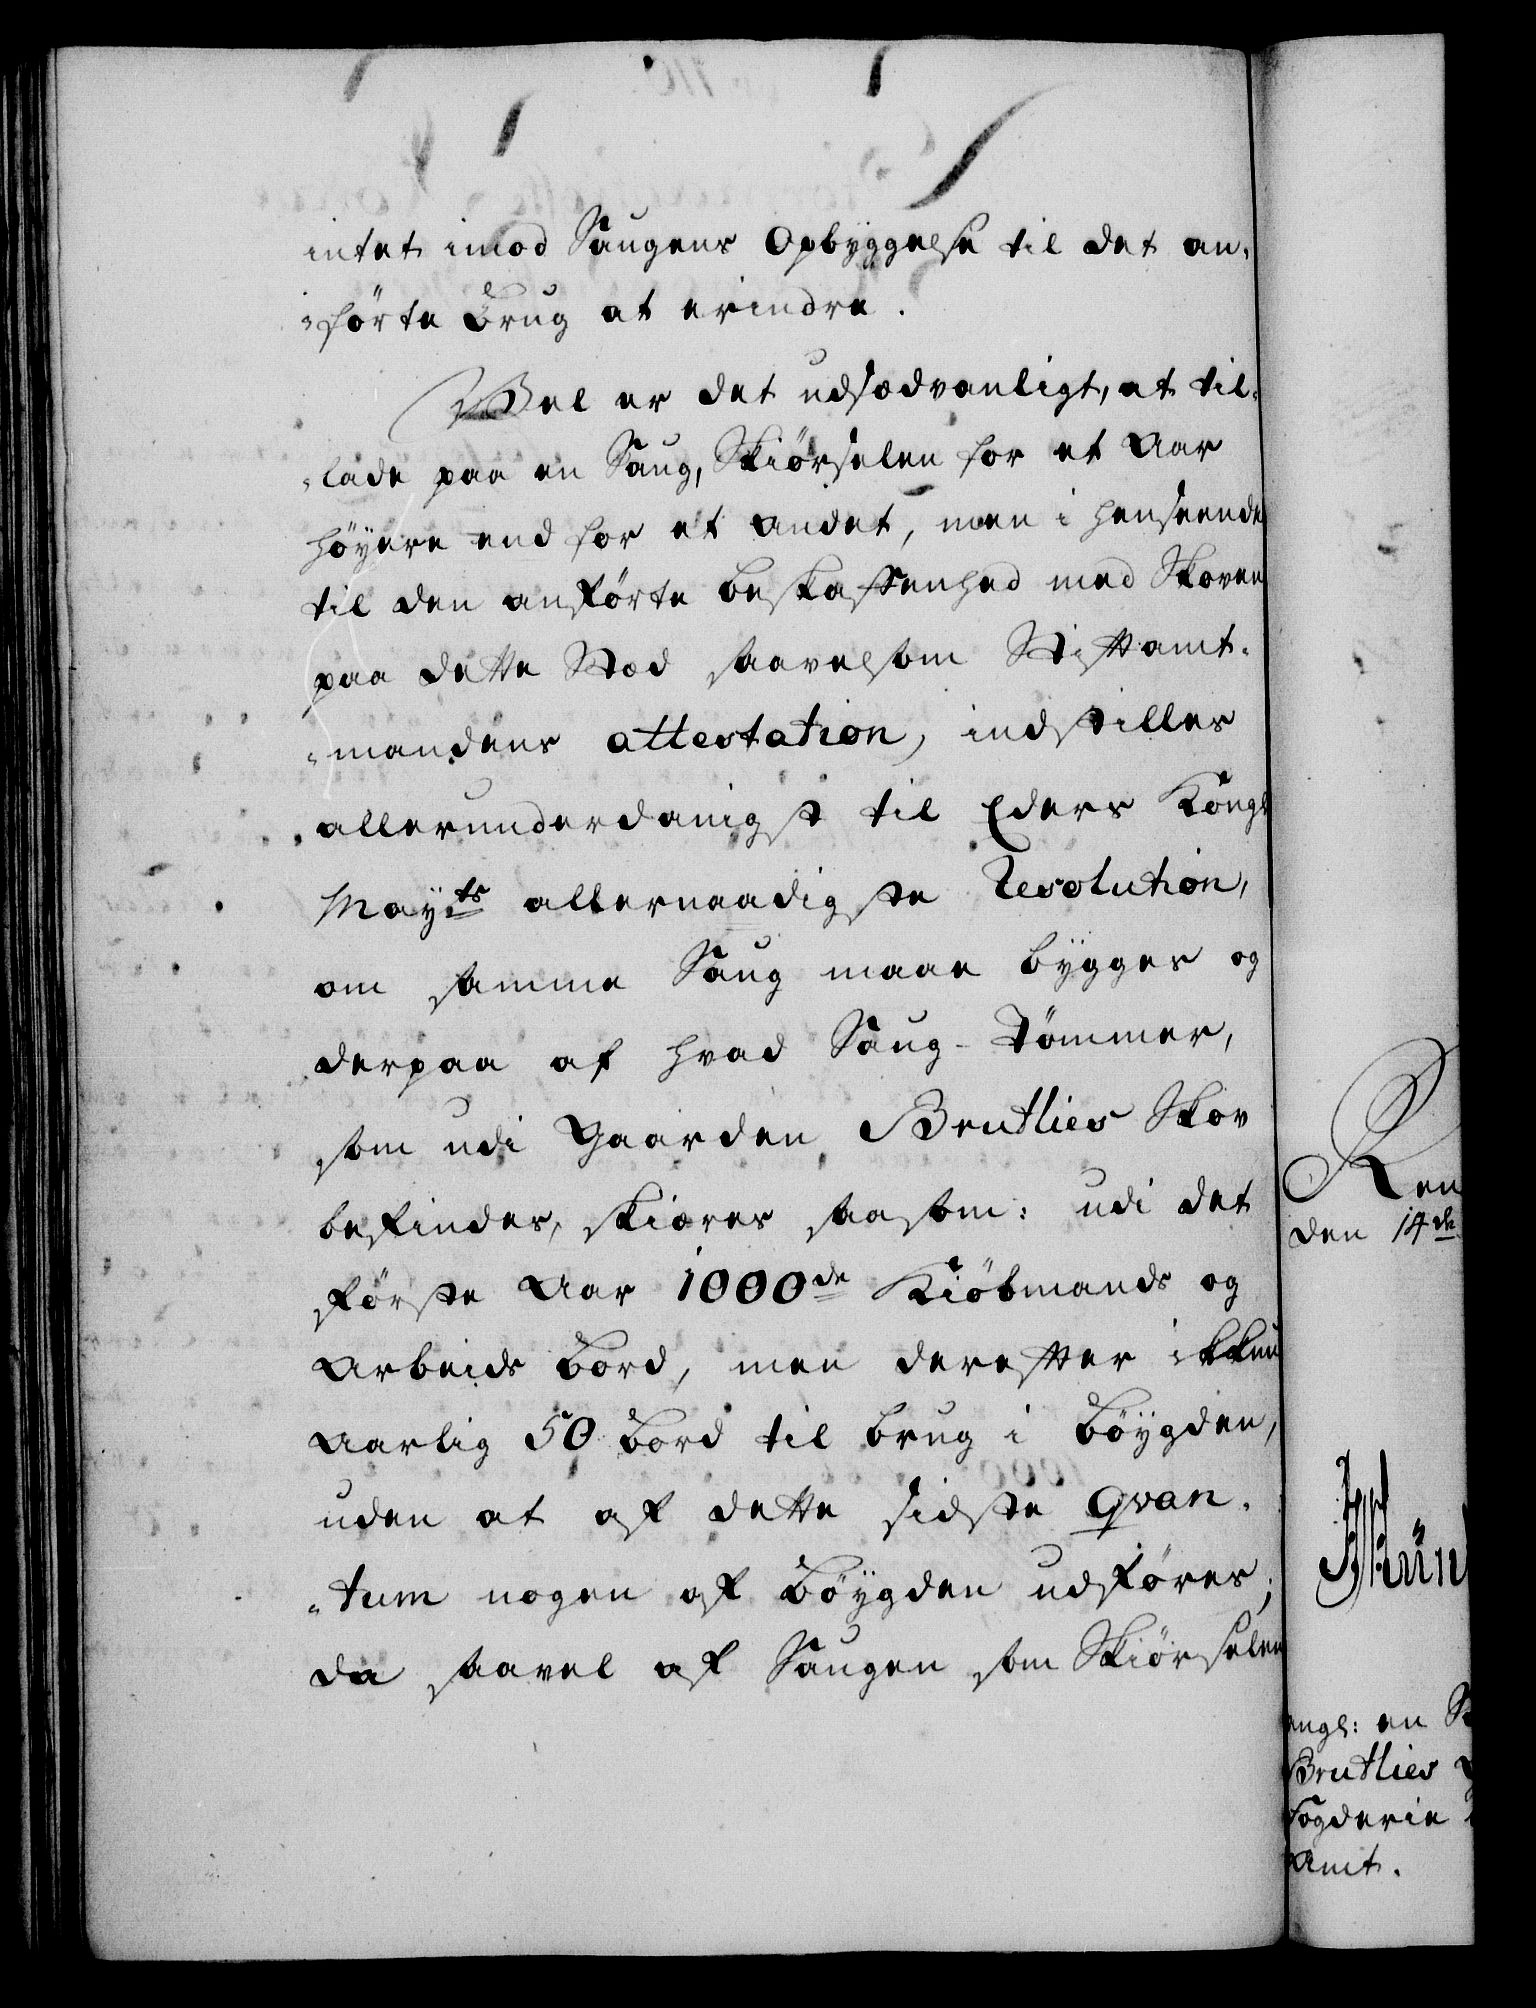 intet imod Saugens Opbyggelse til det an-
-förte Brug at erindre.
Vel er det udsædvanligt, at til-
-lade paa en Saug, Skiörselen for et Aar
höyere end for et andet, men i henseende
til den anförte beskaffenhed med Skoven
paa dette Stæd saavelsom Stiftamt-
-mandens attestation, indstilles
allerunderdanigst til Eders Kongl
Mayts allernaadigste Resolution,
om samme Saug maae bygges og
derpaa af hvad Saug-Tömmer,
som udi Gaarden Brutlies Skov
befindes, skiæres saasom: udi det
förste Aar 1000de Kiöbmands og
Arbeids Bord, men derefter ikkun
Aarlig 50 Bord til brug i Böygden,
uden at af dette sidste Qvan-
-tum nogen af Böygden udföres;
da saavel af Saugen som Skiörselen
Ren
den 14de
engl: en
Brutlies
Fogderie
Amt.